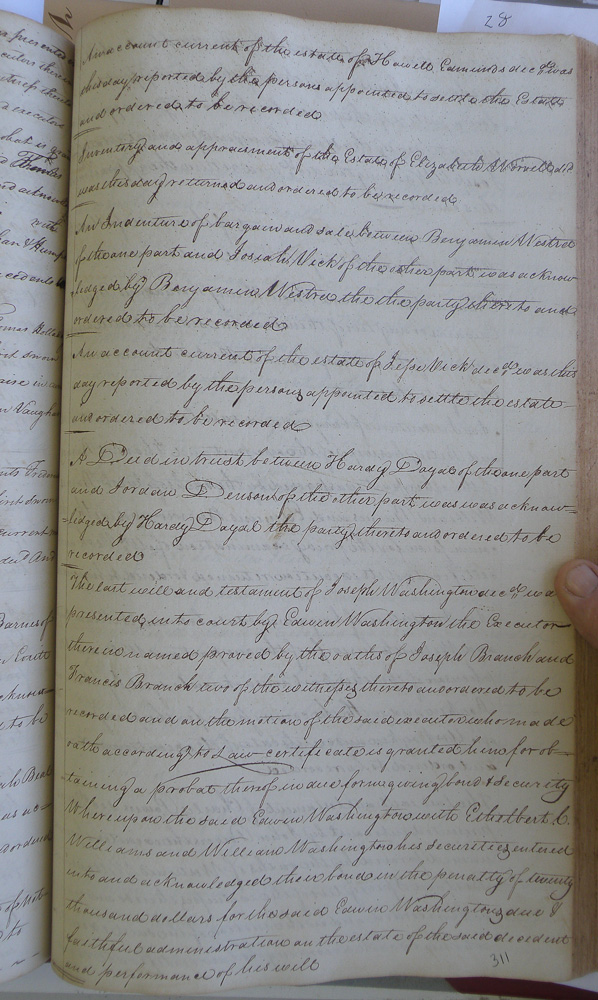 28
An account current of the estate of Howell Edmunds decd. was
this day reported by the persons appointed to settle the Estate
and ordered to be recorded
Inventory and appraisment of the Estate of Elizabeth Worrell decd
was this day returned and ordered to be recorded
An Indenture of bargain and sale between Benjamin Westra
of the one part and Josiah Vick of the other part was acknow
ledged by Benjamin Westra the the party thereto and
ordered to be recorded
An account current of the estate of Jesse Vick decd. was this
day reported by the persons appointed to settle the estate
and ordered to be recorded
A Deed in trust between Hardy Doyal of the one part
and Jordan Denson of the other part was was acknow=
=ledged by Hardy Doyal the party thereto and ordered to be
recorded
The last will and testament of Joseph Washington decd. was
presented into court by Edwin Washington the Executor
therein named proved by the oaths of Joseph Branch and
Francis Branch two of the witnesses thereto and ordered to be
recorded and on the motion of the said executor who made
oath according to Law certificate is granted him for ob-
taining a probat thereof in due form giving bond & security
Whereupon the said Edwin Washington with Ethelbert C.
Williams and William Washington his securities entered
into and acknowledged their bond in the penalty of twenty
thousand dollars for the said Edwin Washingtons due &
faithful administration on the estate of the said decedent
and performance of his will
311